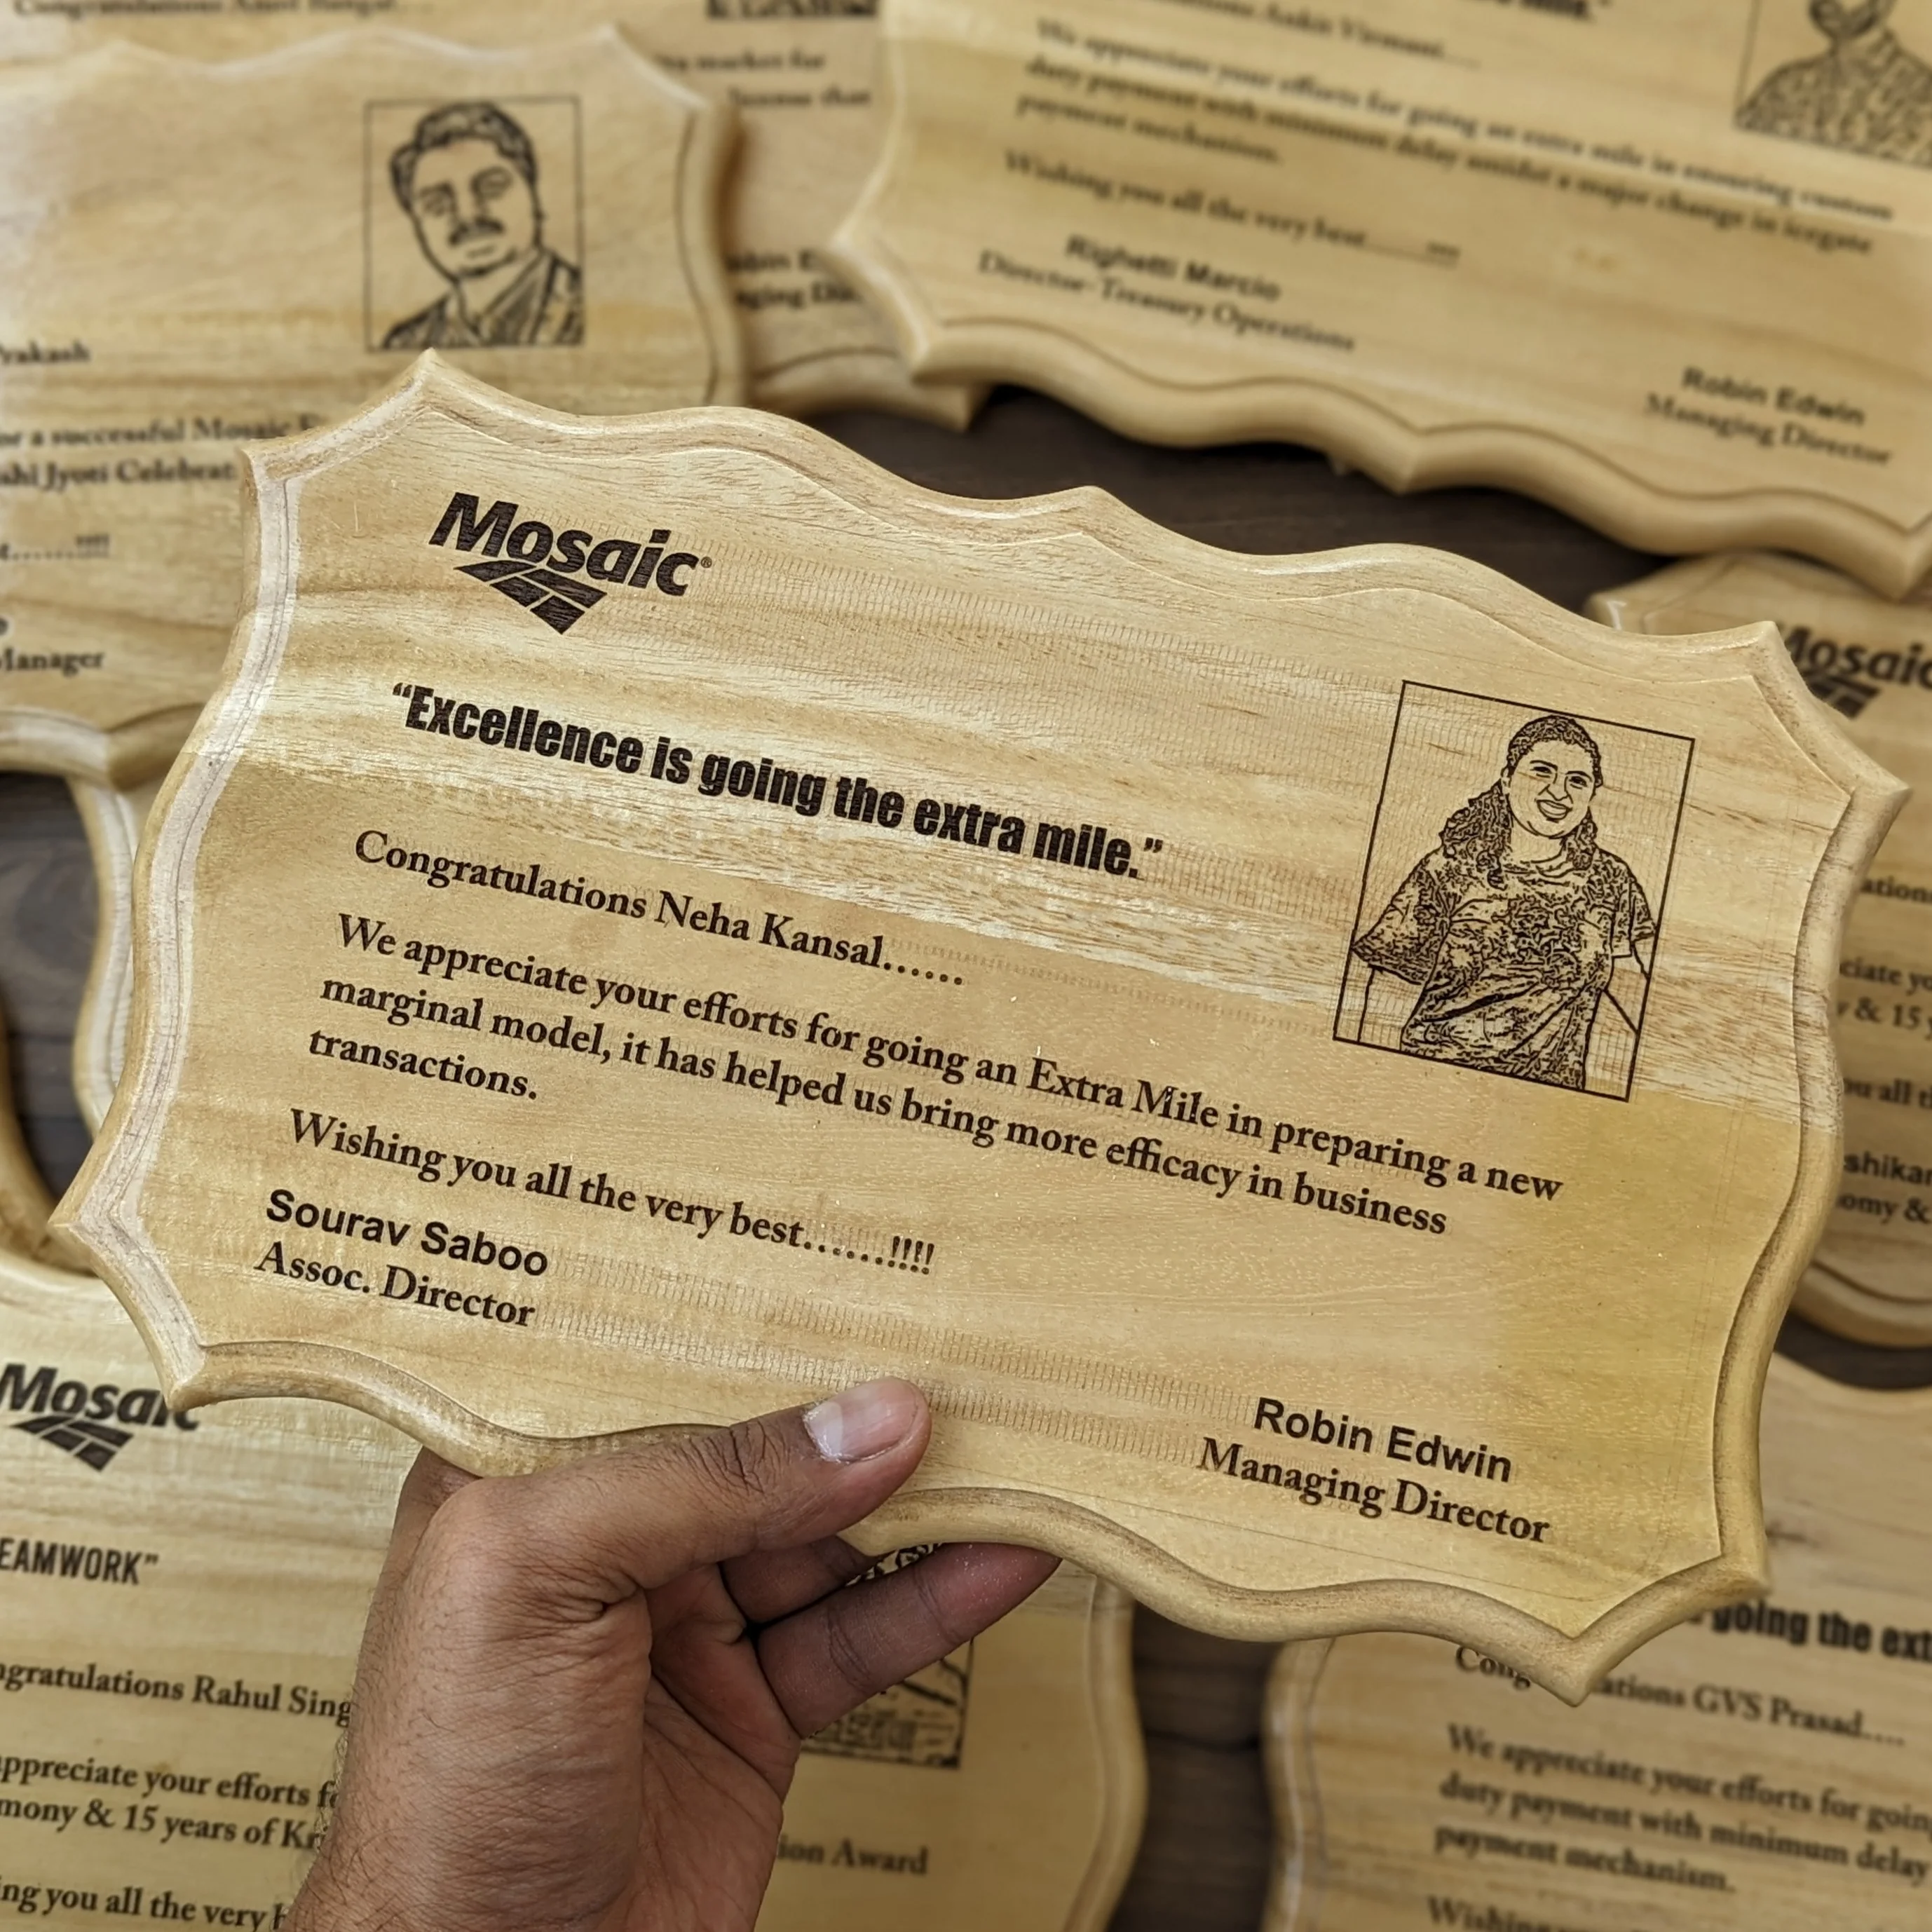 Congratulations
market for
license that
Congratulations Ankit Virmani......
We appreciate your efforts for going an extra mile in ensuring custom
duty payment with minimum delay amidst a major change in icegate
payment mechanism.
Wishing you all the very best
Righetti Marcio
Director-Treasury Operations
Robin Edwin
Managing Director
Prakash
for a successful Mosaic
Jyoti Celebrat
......!!!!
Manager
Mosaic®
“Excellence is going the extra mile.”
Congratulations Neha Kansal......
We appreciate your efforts for going an Extra Mile in preparing a new
marginal model, it has helped us bring more efficacy in business
transactions.
Wishing you all the very best......!!!!
Sourav Saboo
Assoc. Director
Robin Edwin
Managing Director
Mosaic
& 15
Mosaic
EAMWORK”
ngratulations Rahul Sing
appreciate your efforts f
mony & 15 years of Kr
ng you all the very
ion Award
going the ext
Cong ations GVS Prasad....
We appreciate your efforts for going
duty payment with minimum delay
payment mechanism.
Wishing